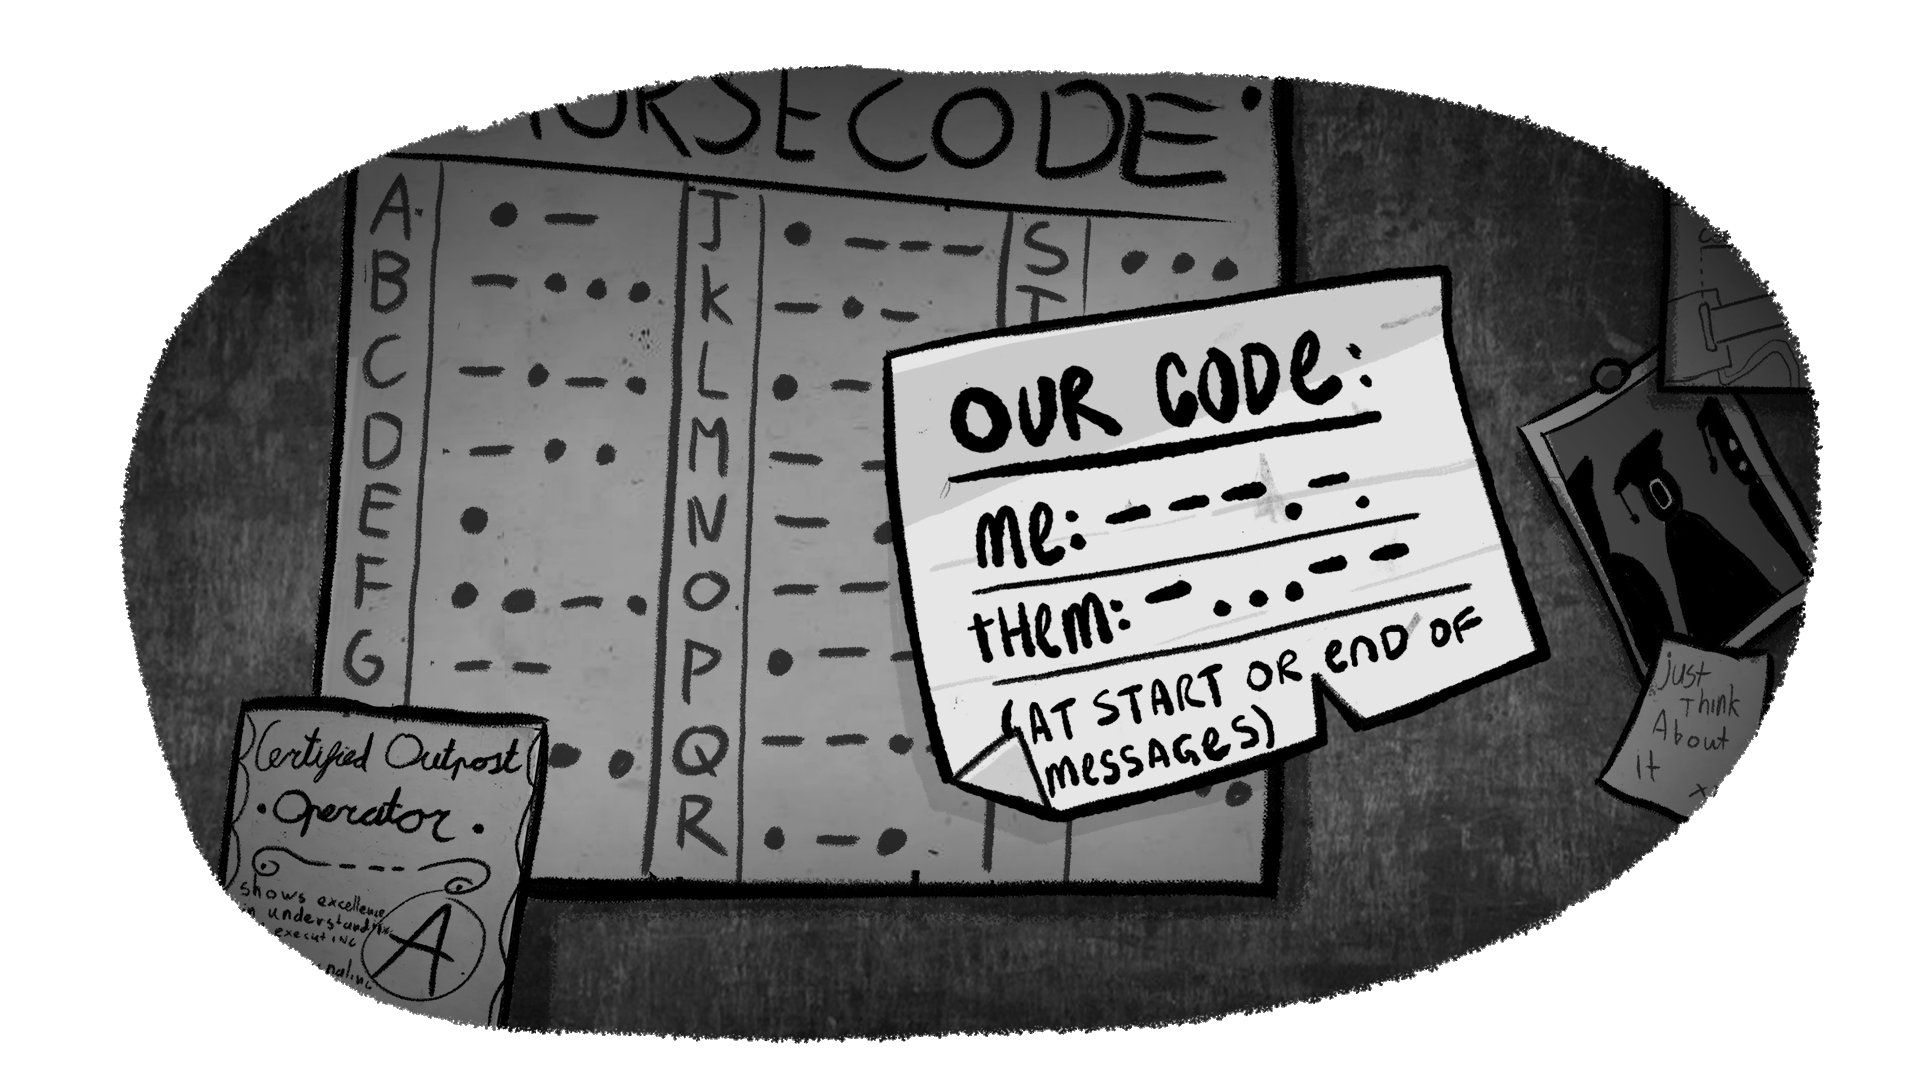 MORSE CODE
A • — J • — — — S • • •
B — • • • K — • — T
C — • — • L • —
D — • • M —
E • N —
F • • — • O — —
G — — P • —
Q — — •
R • — •
OUR CODE:
me: — — — . — .
tHem: — . . . — —
(AT START OR end OF
messAGes)
Certified Outpost
• Operator •
shows excellence
in understanding
executing
A
just
Think
About
it
x